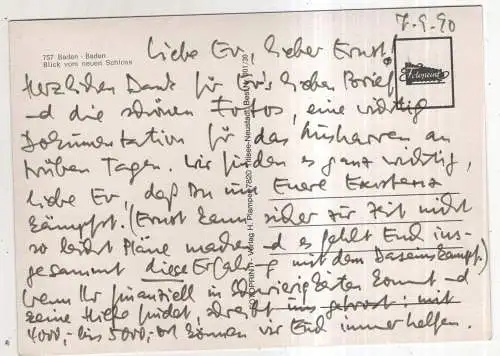 7.9.90
757 Baden-Baden
Blick vom neuen Schloss
Liebe Ev, lieber Ernst!
Fotoprint
Herzlichen Dank für Ev's lieben Brief
und die schönen Fotos, eine wichtige
Dokumentation für das Ausharren an
trüben Tagen. Wir finden es ganz wichtig,
liebe Ev, daß Du um Euere Existenz
kämpfst. (Ernst kann sicher zur Zeit nicht
so leicht Pläne machen und es fehlt Euch ins-
gesamt diese Erfahrung mit dem Daseinskampf.)
Wenn Ihr finanziell in Schwierigkeiten kommt und
keine Hilfe findet, schreibt uns getrost: mit
4000,- bis 5000,- können wir Euch immer helfen.
FOTOPRINT - Verlag H. 7820 Titisee-Neustadt Best.-Nr.